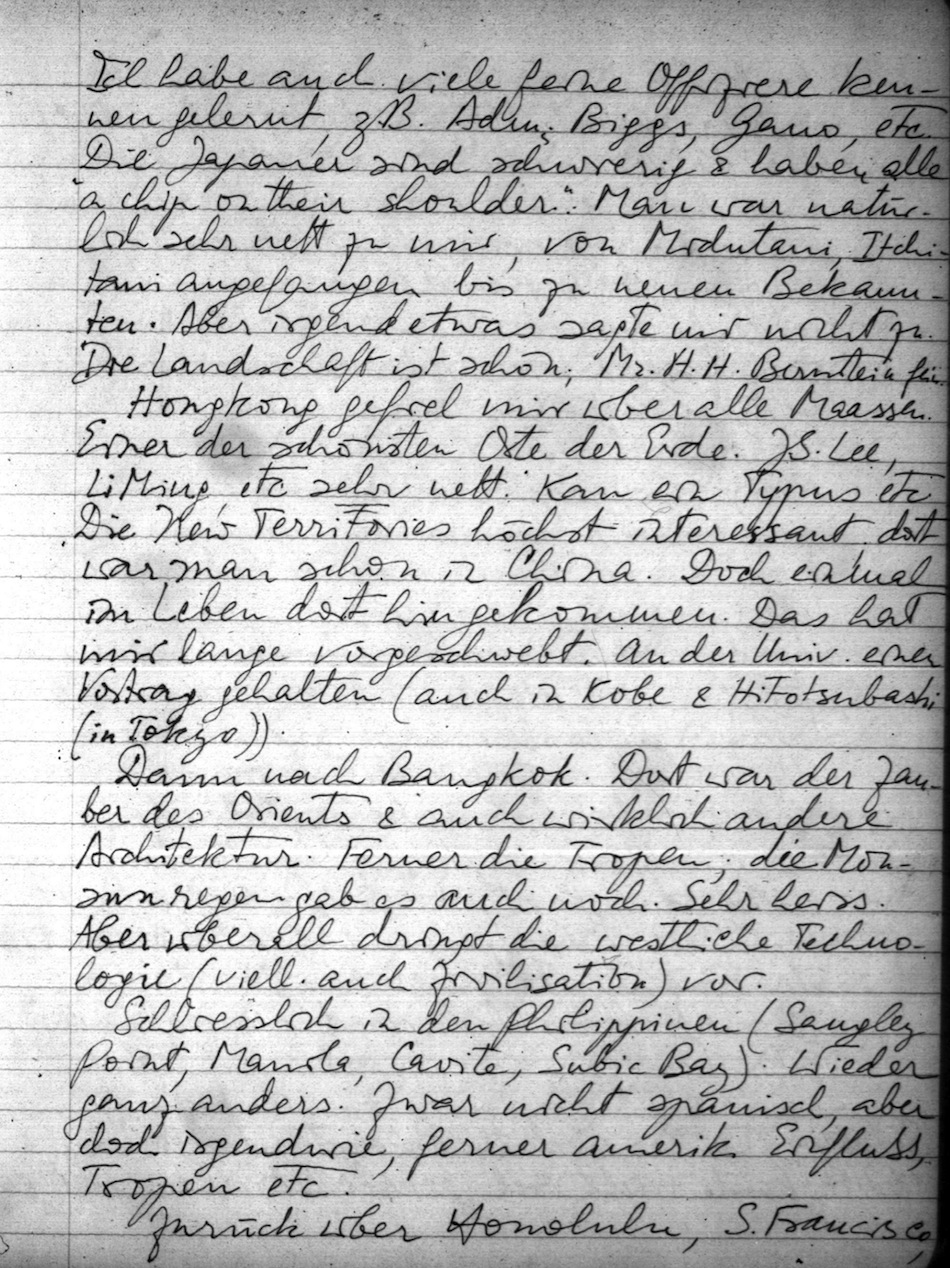 Ich habe auch viele feine Offiziere ken-
nen gelernt, z.B. Adm. Biggs, Gano, etc.
Die Japaner sind schwierig & haben alle
"a chip on their shoulder". Man war natür-
lich sehr nett zu mir, von Midutani, Itchi-
tani angefangen bis zu neuen Bekann-
ten. Aber irgend etwas sagte mir nicht zu.
Die Landschaft ist schön; Mr. H. H. Bernstein fein
Hongkong gefiel mir über alle Maassen.
Einer der schönsten Orte der Erde. J.S. Lee,
Li Ming etc sehr nett. Kan ein Typus etc
Die New Territories höchst interessant dort
war man schon in China. Doch einmal
im Leben dort hingekommen. Das hat
mir lange vorgeschwebt. An der Univ. einen
Vortrag gehalten (auch in Kobe & Hitotsubashi
(in Tokyo)).
Dann nach Bangkok. Dort war der Zau-
ber des Orients & auch wirklich andere
Architektur. Ferner die Tropen; die Mon-
sunregen gab es auch noch. Sehr heiss.
Aber überall dringt die westliche Techno-
logie (viell. auch Zivilisation) vor.
Schliesslich in den Philippinen (Sangley
Point, Manila, Cavite, Subic Bay). Wieder
ganz anders. Zwar nicht spanisch, aber
doch irgendwie, ferner amerik. Einfluss,
Tropen etc.
Zurück über Honolulu, S. Francisco,